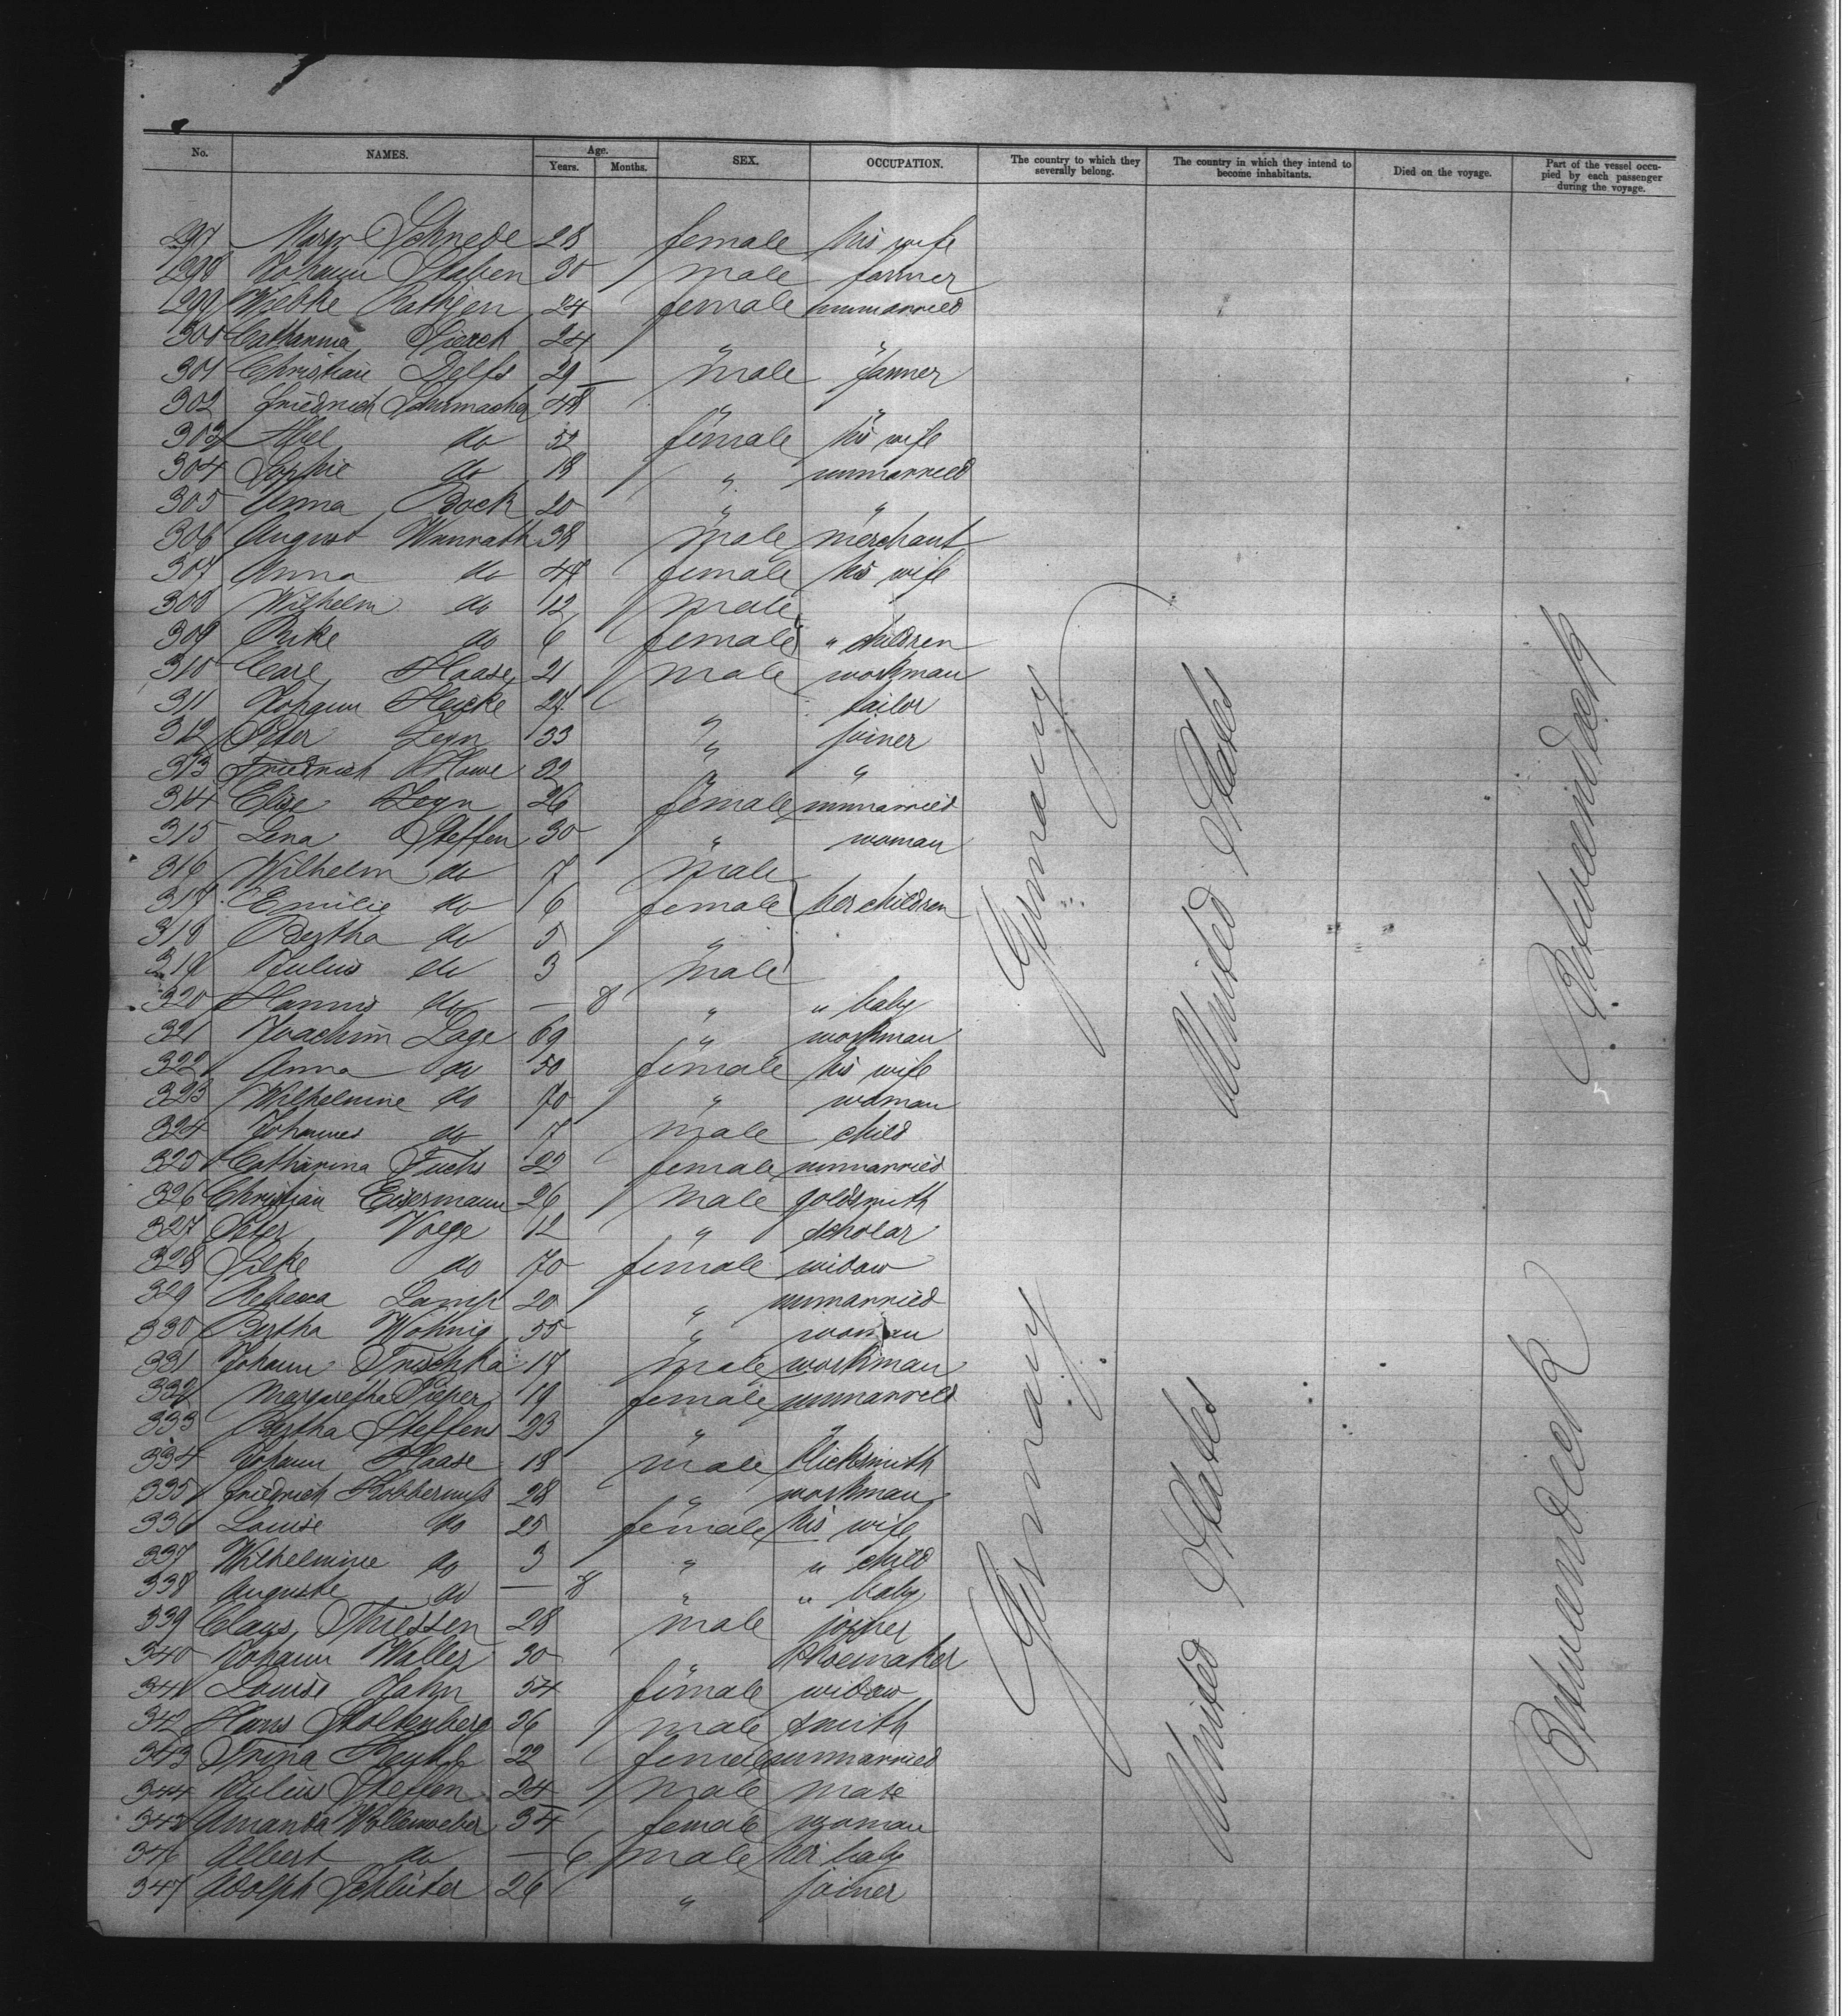 No. NAMES. Age. Years. Months. SEX. OCCUPATION. The country to which they severally belong. The country in which they intend to become inhabitants. Died on the voyage. Part of the vessel occupied by each passenger during the voyage.
297 Margr Schnede 28 female his wife
298 Johann Staben 30 male farmer
299 Wiebke Rathjen 24 female unmarried
300 Catharina Sierck 24 " "
301 Christian Delfs 29 — male farmer
302 Friedrich Schumacher 48 " "
303 Abel do 52 female his wife
304 Sophie do 18 " unmarried
305 Anna Bock 20 " "
306 August Wunrath 38 male merchant
307 Anna do 44 female his wife
308 Wilhelm do 12 male
309 Rike do 6 female " children
310 Carl Haase 21 male workman
311 Johann Heicke 27 tailor
312 Peter Leyn 33 " joiner
313 Friedrich Howe 32 " "
314 Elise Leyn 26 female unmarried
315 Lena Steffen 30 " woman
316 Wilhelm do 7 male
317 Emilie do 6 female her children
318 Bertha do 5 "
319 Julius do 3 male
320 Hannis do — 8 " " baby
321 Joachim Lage 69 " workman
322 Anna do 50 female his wife
323 Wilhelmine do 70 " woman
324 Johannes do 7 male child
325 Catharina Fuchs 22 female unmarried
326 Christian Eisermann 26 male goldsmith
327 Peter Voege 12 " scholar
328 Silke do 70 female widow
329 Rebecca Lamp 20 " unmarried
330 Bertha Wohnig 55 " woman
331 Johann Trischka 17 male workman
332 Margaretha Pieper 19 female unmarried
333 Bertha Steffens 23 " "
334 Johann Haase 18 male blicksmith
335 Friedrich Kobbernuss 28 " workman
336 Louise do 25 female his wife
337 Wilhelmine do 3 " " child
338 Auguste do — 8 " " baby
339 Claus Thiessen 28 male joiner
340 Johann Waller 30 " shoemaker
341 Louise Hahn 54 female widow
342 Hans Stoltenberg 26 male smith
343 Trina 22 female unmarried
344 Julius Steffen 24 male mate
345 Amanda Wollenweber 34 female woman
346 Albert do — 6 male her baby
347 Adolph Schlüter 26 " joiner
Germany
United States
Betweendeck
Germany
United States
Betweendeck